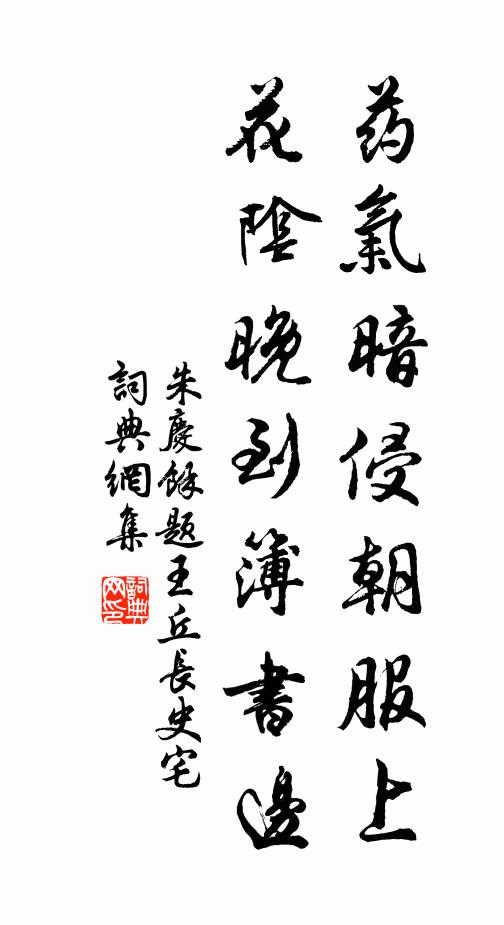 药氣暗侵朝服上
花陰晚到簿書邊
朱慶餘題王丘長史宅
詞典網集
詞典网印